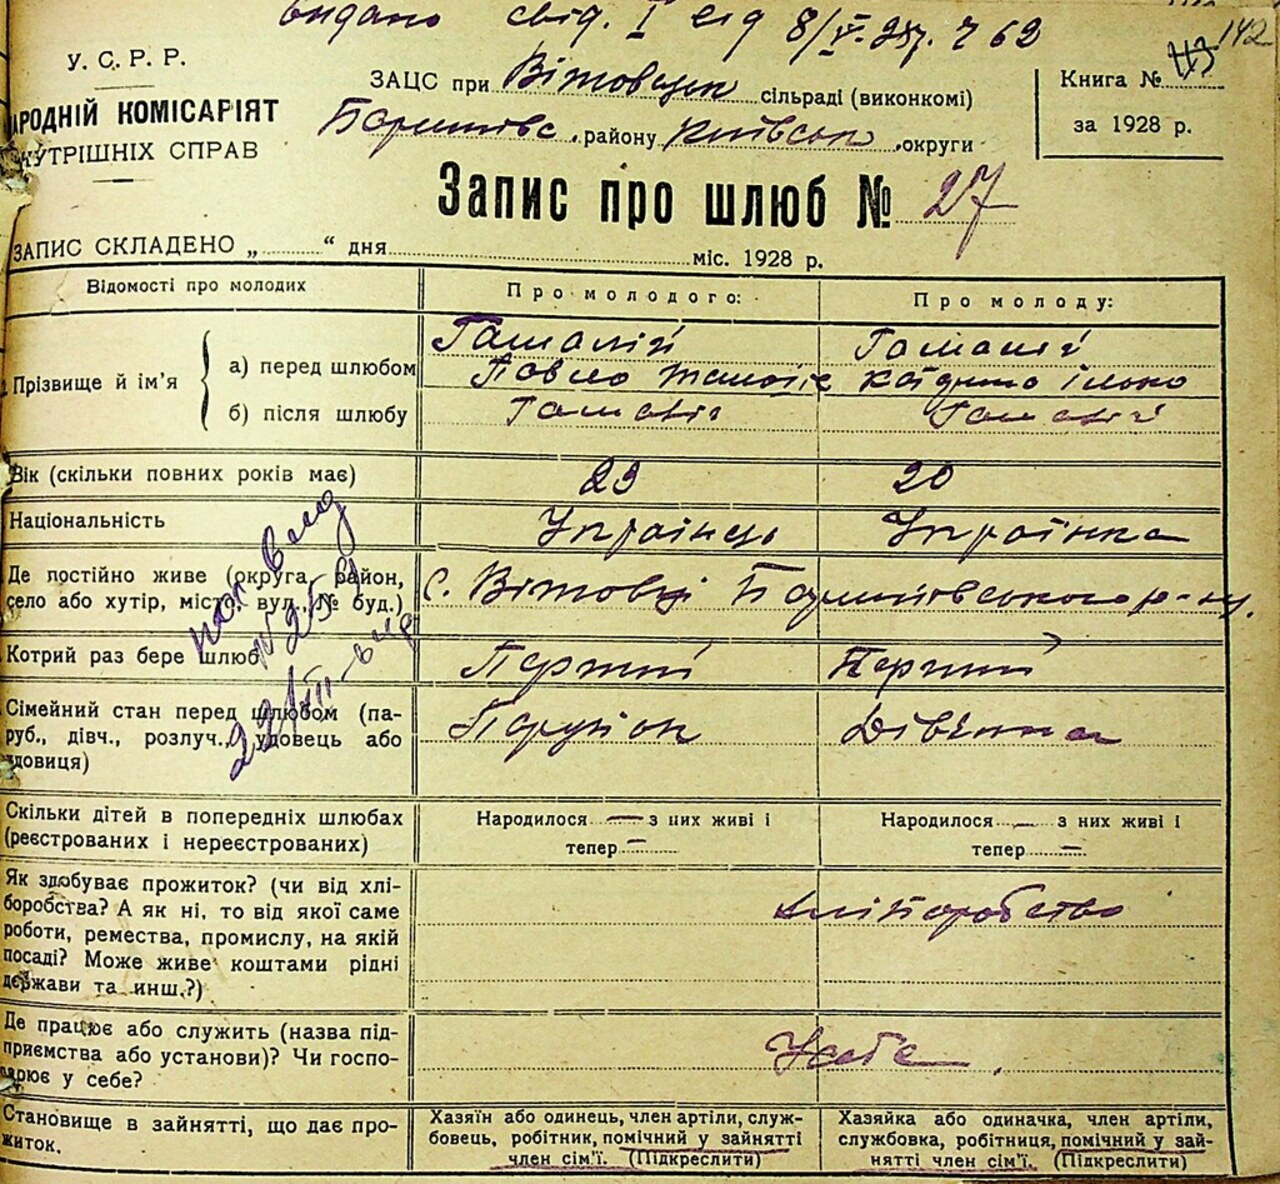 видано свід. І від 8/V-28р. № 62
142
У. С. Р. Р.
НАРОДНІЙ КОМІСАРІЯТ
ВНУТРІШНІХ СПРАВ
ЗАЦС при сільраді (виконкомі)
району округи
Книга №
за 1928 р.
Запис про шлюб № 27
ЗАПИС СКЛАДЕНО „ “ дня міс. 1928 р.
Відомості про молодих
Про молодого:
Про молоду:
Прізвище й ім'я
а) перед шлюбом
Гамалій
Гамалій
Павло
б) після шлюбу
Гамалій
Гамалій
Вік (скільки повних років має)
23
20
Національність
Українець
Українка
Де постійно живе (округа, район,
село або хутір, місто, вул., № буд.)
с. Вітовці Баришівського р-ну.
Котрий раз бере шлюб
Перший
Перший
Сімейний стан перед шлюбом (па-
руб., дівч., розлуч., удовець або
удовиця)
Парубок
Дівчина
Скільки дітей в попередніх шлюбах
(реєстрованих і нереєстрованих)
Народилося — з них живі і
тепер —
Народилося — з них живі і
тепер —
Як здобуває прожиток? (чи від хлі-
боробства? А як ні, то від якої саме
роботи, ремества, промислу, на якій
посаді? Може живе коштами рідні
держави та инш.?)
хліборобство
Де працює або служить (назва під-
приємства або установи)? Чи госпо-
дарює у себе?
У себе
Становище в зайнятті, що дає про-
житок.
Хазяїн або одинець, член артіли, служ-
бовець, робітник, помічний у зайнятті
член сім'ї. (Підкреслити)
Хазяйка або одиначка, член артіли,
службовка, робітниця, помічний у зай-
нятті член сім'ї. (Підкреслити)